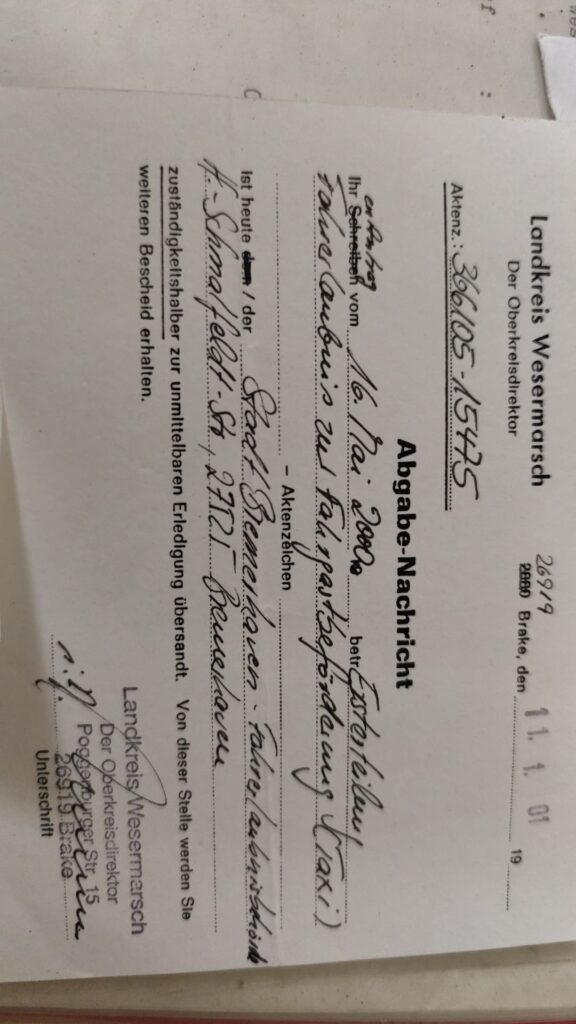 Landkreis Wesermarsch
Der Oberkreisdirektor
26919
2880 Brake, den 11. 1. 01 19
Aktenz.: 366105-15475
Abgabe-Nachricht
en Antrag
Ihr Schreiben vom 16. Mai 2000 betr. Ersterteilung
Fahrerlaubnis zur Fahrgastbeförderung (Taxi)
– Aktenzeichen
ist heute dem / der Stadt Bremerhaven - Fahrerlaubnisbehörde
H.-Schmalfeldt-Str., 27525 Bremerhaven
zuständigkeitshalber zur unmittelbaren Erledigung übersandt. Von dieser Stelle werden Sie
weiteren Bescheid erhalten.
Landkreis Wesermarsch
Der Oberkreisdirektor
Poggenburger Str. 15
26919 Brake
i.A.
Unterschrift